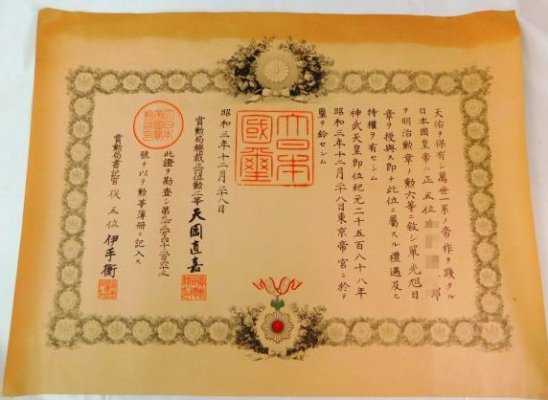 天佑ヲ保有シ萬世一系ノ帝祚ヲ踐タル
日本國皇帝ハ正五位 郎
ヲ明治勲章ノ勲六等ニ敍シ單光旭日
章ヲ授與ス即チ此位ニ屬スル禮遇及ヒ
特權ヲ有セシム
神武天皇即位紀元二千五百八十八年
昭和三年十二月廿八日東京帝宮ニ於テ
璽ヲ鈐セシム
大日本國璽
昭和三年十二月廿八日
賞勲局總裁正三位勲一等天岡直嘉
此證ヲ勘査シ第
號ヲ以テ勲等簿冊ニ記入ス
賞勲局書記官從五位伊手衡